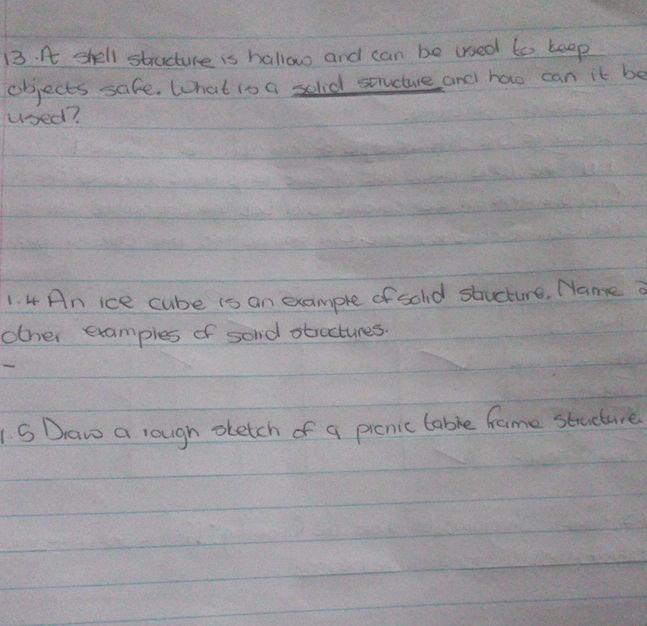 13. A shell structure is hallow and can be used to keep
objects safe. What is a solid structure and how can it be
used?
1.4 An ice cube is an example of solid structure. Name 2
other examples of solid structures.
-
1.5 Draw a rough sketch of a picnic table frame structure.